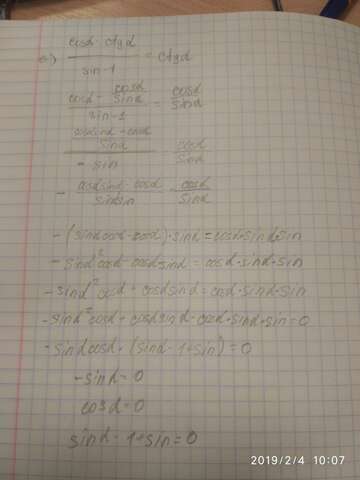 a) cosα - ctgα / sin-1 = ctgα
cosα - cosα/sinα / sin-1 = cosα/sinα
cosα sinα - cosα / sinα / - sin cosα/sinα
- cosα sinα - cosα / sinα sin = cosα/sinα
-(sinα cosα - cosα) · sinα = cosα · sinα · sin
- sinα² cosα - cosα sinα = cosα · sinα · sin
- sinα² cosα + cosα sinα = cosα · sinα · sin
- sinα² cosα + cosα sinα - cosα · sinα · sin = 0
- sinα cosα · (sinα - 1 + sin) = 0
- sinα = 0
cosα = 0
sinα - 1 + sin = 0
2019/2/4 10:07